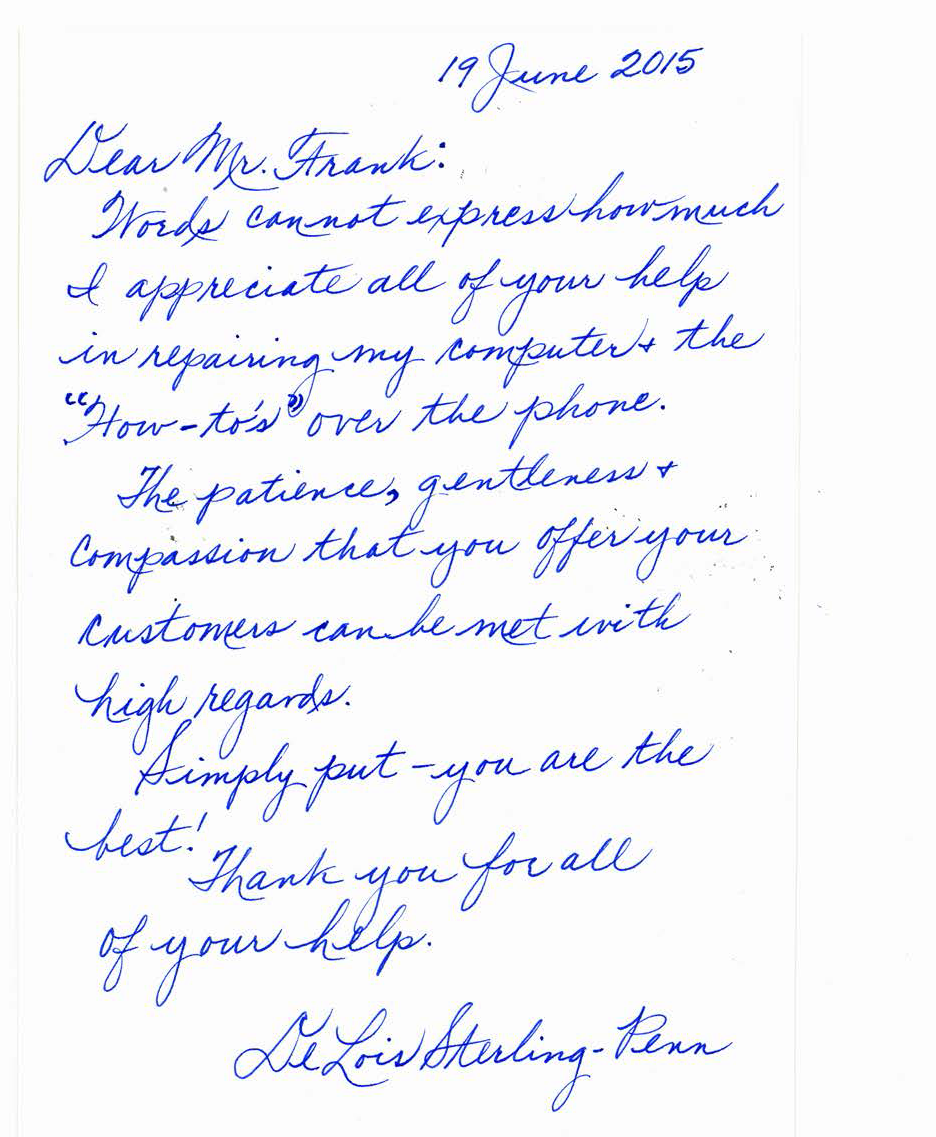 19 June 2015
Dear Mr. Frank:
Words cannot express how much
I appreciate all of your help
in repairing my computer + the
"How-to's" over the phone.
The patience, gentleness +
compassion that you offer your
customers can be met with
high regards.
Simply put - you are the
best!
Thank you for all
of your help.
DeLois Sterling-Penn